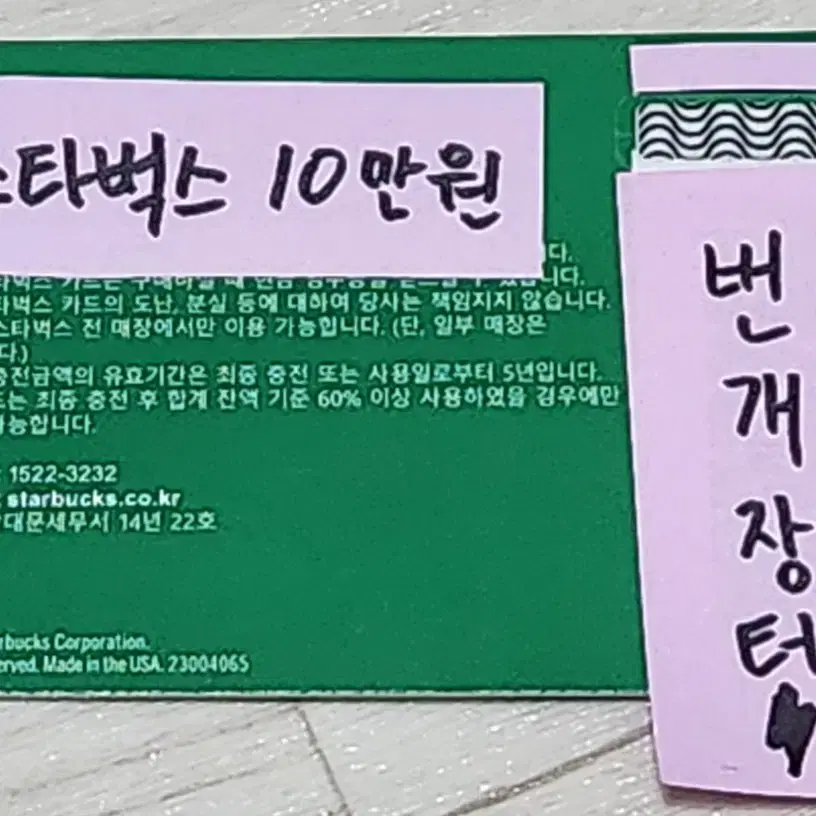 스타벅스 10만원
다.
타벅스 카드는 구매하실 때 현금 영수증을 받으실 수 있습니다.
타벅스 카드의 도난, 분실 등에 대하여 당사는 책임지지 않습니다.
스타벅스 전 매장에서만 이용 가능합니다. (단, 일부 매장은
다.)
충전금액의 유효기간은 최종 충전 또는 사용일로부터 5년입니다.
드는 최종 충전 후 합계 잔액 기준 60% 이상 사용하였을 경우에만
가능합니다.
: 1522-3232
: starbucks.co.kr
남대문세무서 14년 22호
rbucks Corporation.
erved. Made in the USA. 23004065
번
개
장
터